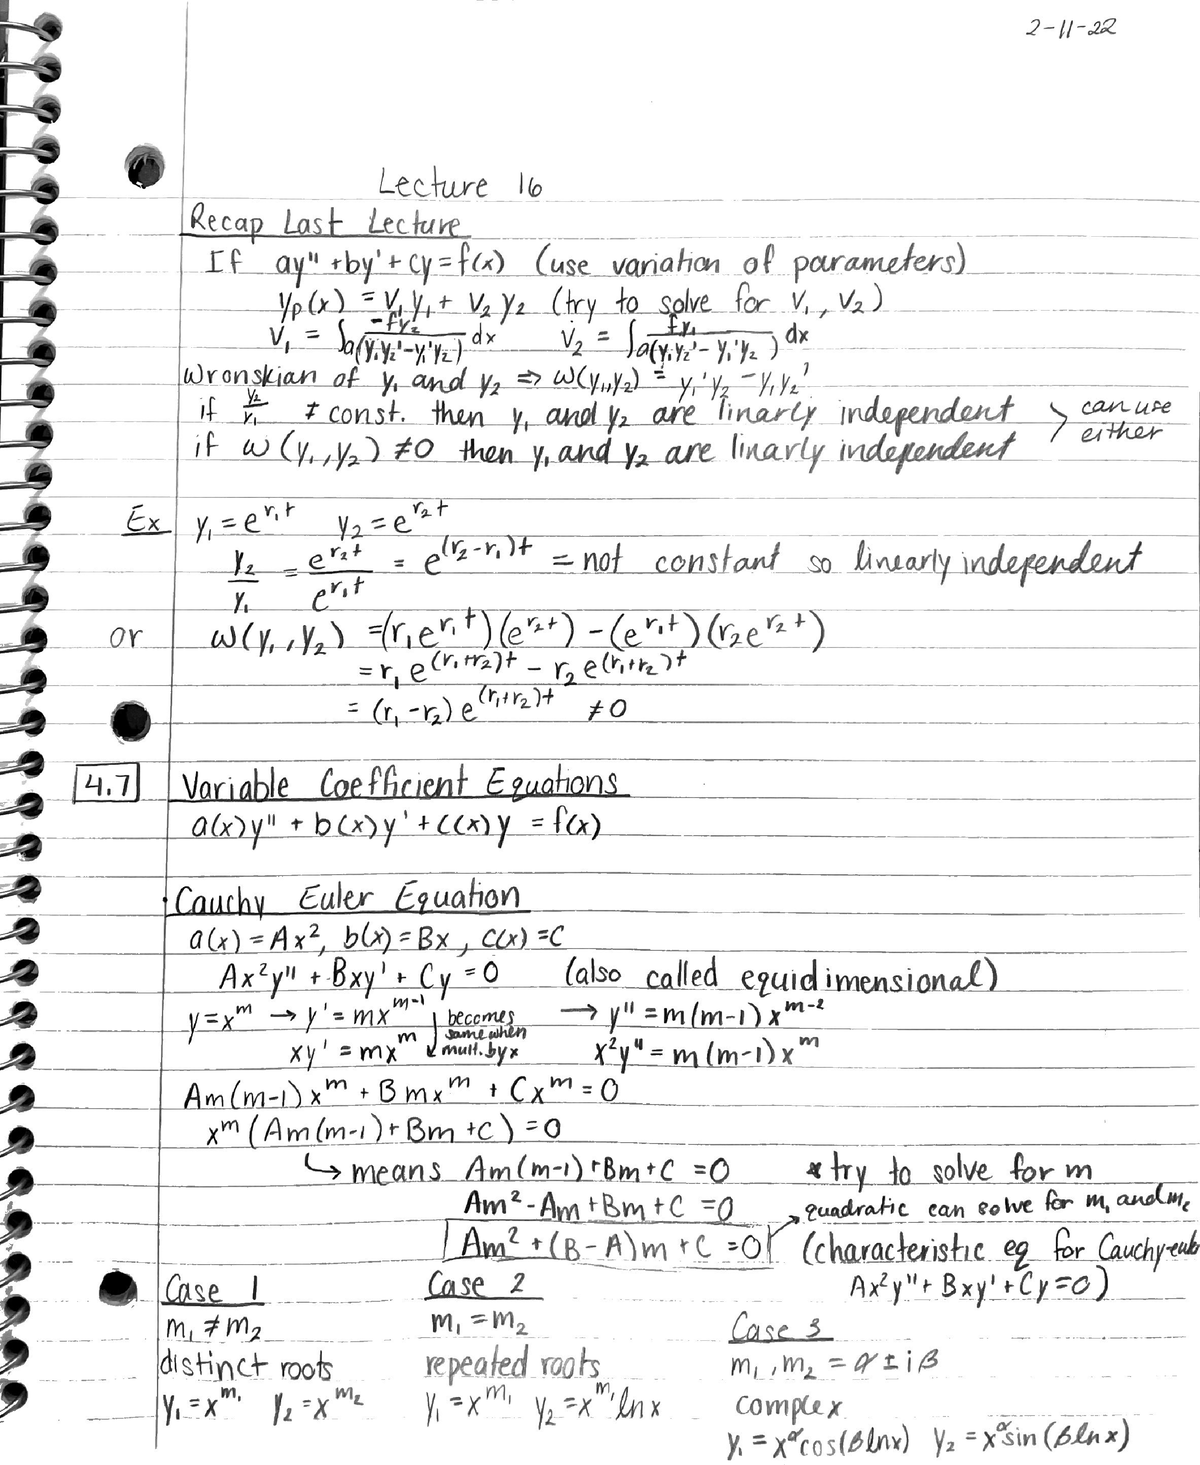 2-11-22
Lecture 16
Recap Last Lecture
If ay'' + by' + cy = f(x) (use variation of parameters)
yp(x) = V₁y₁ + V₂y₂ (try to solve for V₁, V₂)
V₁ = ∫ -fy₂/a(y₁y₂'-y₁'y₂) dx V₂ = ∫ fy₁/a(y₁y₂'-y₁'y₂) dx
Wronskian of y₁ and y₂ ⇒ W(y₁,y₂) = y₁'y₂ - y₁y₂'
if y₂/y₁ ≠ const. then y₁ and y₂ are linarly independent
if W(y₁,y₂) ≠ 0 then y₁ and y₂ are linarly independent
> can use
either
Ex y₁ = e^r₁t y₂ = e^r₂t
y₂/y₁ = e^r₂t/e^r₁t = e^(r₂-r₁)t = not constant so linearly independent
or W(y₁,y₂) = (r₁e^r₁t)(e^r₂t) - (e^r₁t)(r₂e^r₂t)
= r₁e^(r₁+r₂)t - r₂e^(r₁+r₂)t
= (r₁-r₂)e^(r₁+r₂)t ≠ 0
4.7 Variable Coefficient Equations
a(x)y'' + b(x)y' + c(x)y = f(x)
Cauchy Euler Equation
a(x) = Ax², b(x) = Bx, c(x) = C
Ax²y'' + Bxy' + Cy = 0 (also called equidimensional)
y = x^m → y' = mx^m-1 → y'' = m(m-1)x^m-2
becomes
same when
mult. by x
xy' = mx^m x²y'' = m(m-1)x^m
Am(m-1)x^m + Bmx^m + Cx^m = 0
x^m(Am(m-1) + Bm + C) = 0
↳ means Am(m-1) + Bm + C = 0 * try to solve for m
Am² - Am + Bm + C = 0 quadratic can solve for m₁ and m₂
Am² + (B-A)m + C = 0 (characteristic eq for Cauchy-eul
Ax²y'' + Bxy' + Cy = 0)
Case 1 Case 2
m₁ ≠ m₂ m₁ = m₂ Case 3
distinct roots repeated roots m₁, m₂ = α ± iβ
y₁ = x^m₁ y₂ = x^m₂ y₁ = x^m₁ y₂ = x^m₁ ln x complex
y₁ = x^α cos(β ln x) y₂ = x^α sin(β ln x)